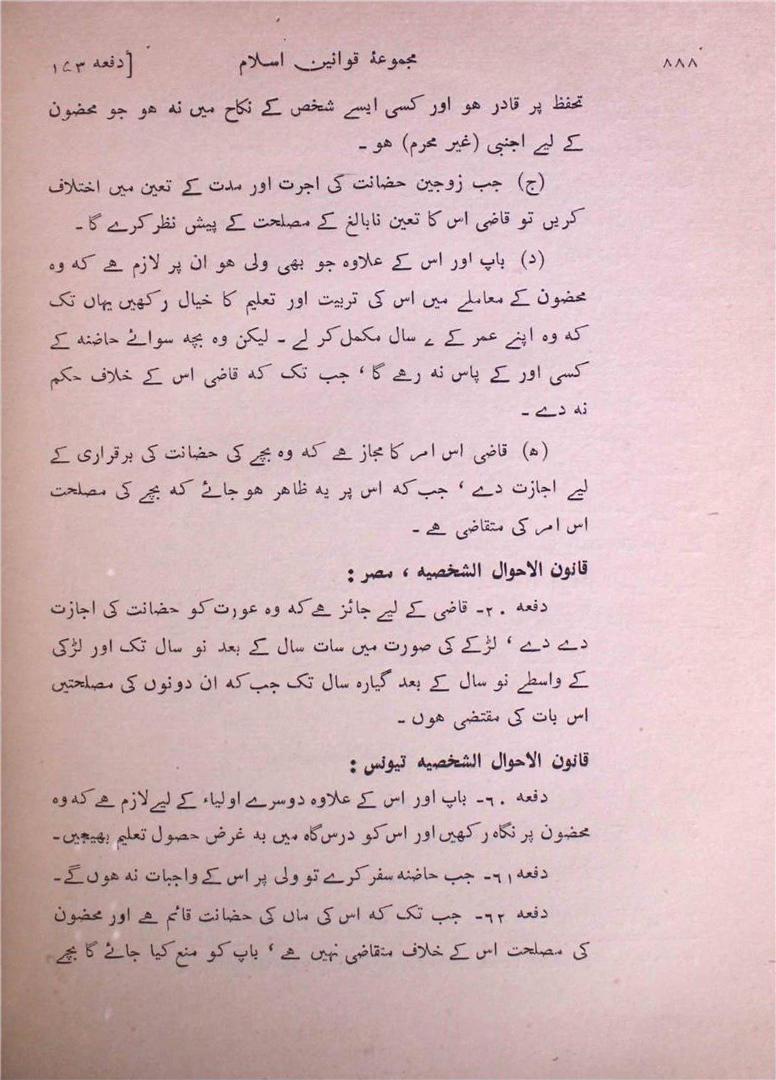 ۸۸۸ مجموعۂ قوانین اسلام [دفعہ ۱۷۳
تحفظ پر قادر ہو اور کسی ایسے شخص کے نکاح میں نہ ہو جو محضون
کے لیے اجنبی (غیر محرم) ہو ۔
(ج) جب زوجین حضانت کی اجرت اور مدت کے تعین میں اختلاف
کریں تو قاضی اس کا تعین نابالغ کے مصلحت کے پیش نظر کرے گا ۔
(د) باپ اور اس کے علاوہ جو بھی ولی ہو ان پر لازم ہے کہ وہ
محضون کے معاملے میں اس کی تربیت اور تعلیم کا خیال رکھیں یہاں تک
کہ وہ اپنے عمر کے ۷ سال مکمل کر لے ۔ لیکن وہ بچہ سوائے حاضنہ کے
کسی اور کے پاس نہ رہے گا ، جب تک کہ قاضی اس کے خلاف حکم
نہ دے ۔
(ھ) قاضی اس امر کا مجاز ہے کہ وہ بچے کی حضانت کی برقراری کے
لیے اجازت دے ، جب کہ اس پر یہ ظاہر ہو جائے کہ بچے کی مصلحت
اس امر کی متقاضی ہے ۔
قانون الاحوال الشخصیہ ، مصر :
دفعہ ۲۰۔ قاضی کے لیے جائز ہے کہ وہ عورت کو حضانت کی اجازت
دے دے ، لڑکے کی صورت میں سات سال کے بعد نو سال تک اور لڑکی
کے واسطے نو سال کے بعد گیارہ سال تک جب کہ ان دونوں کی مصلحتیں
اس بات کی مقتضی ہوں ۔
قانون الاحوال الشخصیہ تیونس :
دفعہ ۶۰۔ باپ اور اس کے علاوہ دوسرے اولیاء کے لیے لازم ہے کہ وہ
محضون پر نگاہ رکھیں اور اس کو درس گاہ میں بہ غرض حصول تعلیم بھیجیں ۔
دفعہ ۶۱۔ جب حاضنہ سفر کرے تو ولی پر اس کے واجبات نہ ہوں گے ۔
دفعہ ۶۲۔ جب تک کہ اس کی ماں کی حضانت قائم ہے اور محضون
کی مصلحت اس کے خلاف متقاضی نہیں ہے ، باپ کو منع کیا جائے گا بچے